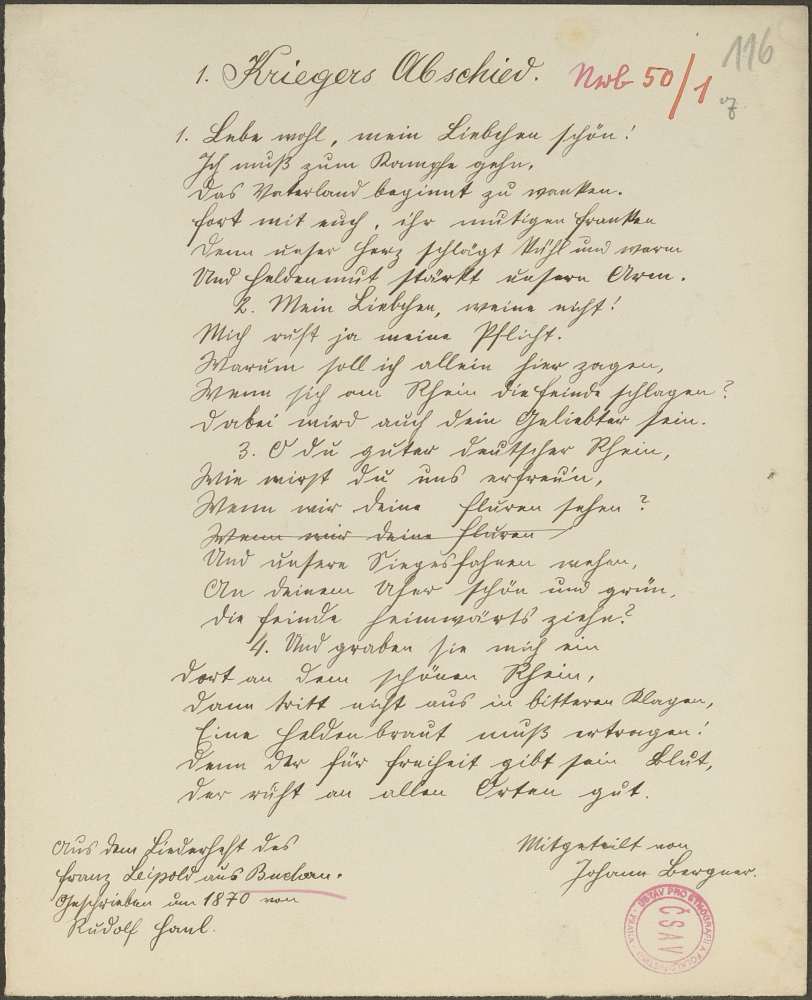 1. Kriegers Abschied.
Nrb 50/1
116
1. Lebe wohl, mein Liebchen schön!
Ich muß zum Kampfe gehn,
Das Vaterland beginnt zu wanken.
Fort mit euch, ihr mutigen Franken
Denn unser Herz schlägt kühl und warm
Und Heldenmut stärkt unsern Arm.
2. Mein Liebchen, weine nicht!
Mich ruft ja meine Pflicht.
Warum soll ich allein hier zagen,
Wenn sich am Rhein die Feinde schlagen?
Dabei wird auch dein Geliebter sein.
3. O du guter deutscher Rhein,
Wie wirst du uns erfreu'n,
Wenn wir deine Fluren sehen?
Wenn wir deine Fluren
Und unsere Siegesfahnen wehen,
An deinem Ufer schön und grün,
Die Feinde heimwärts ziehn?
4. Und graben sie mich ein
Dort an dem schönen Rhein,
Dann tritt nicht aus in bitteren Klagen,
Eine Heldenbraut muß ertragen!
Denn der für Freiheit gibt sein Blut,
Der ruht an allen Orten gut.
Aus dem Liederheft des
Franz Leipold aus Buchau.
Geschrieben um 1870 von
Rudolf Hanl.
Mitgeteilt von
Johann Bergner.
ÚSTAV PRO ETNOGRAFII A FOLKLORISTIKU · PRAHA ·
ČSAV